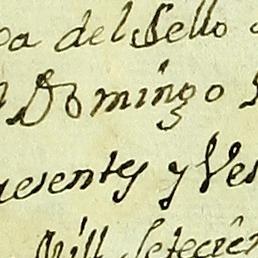 del Sello
Domingo
resentes y Ves
Mill Setecien